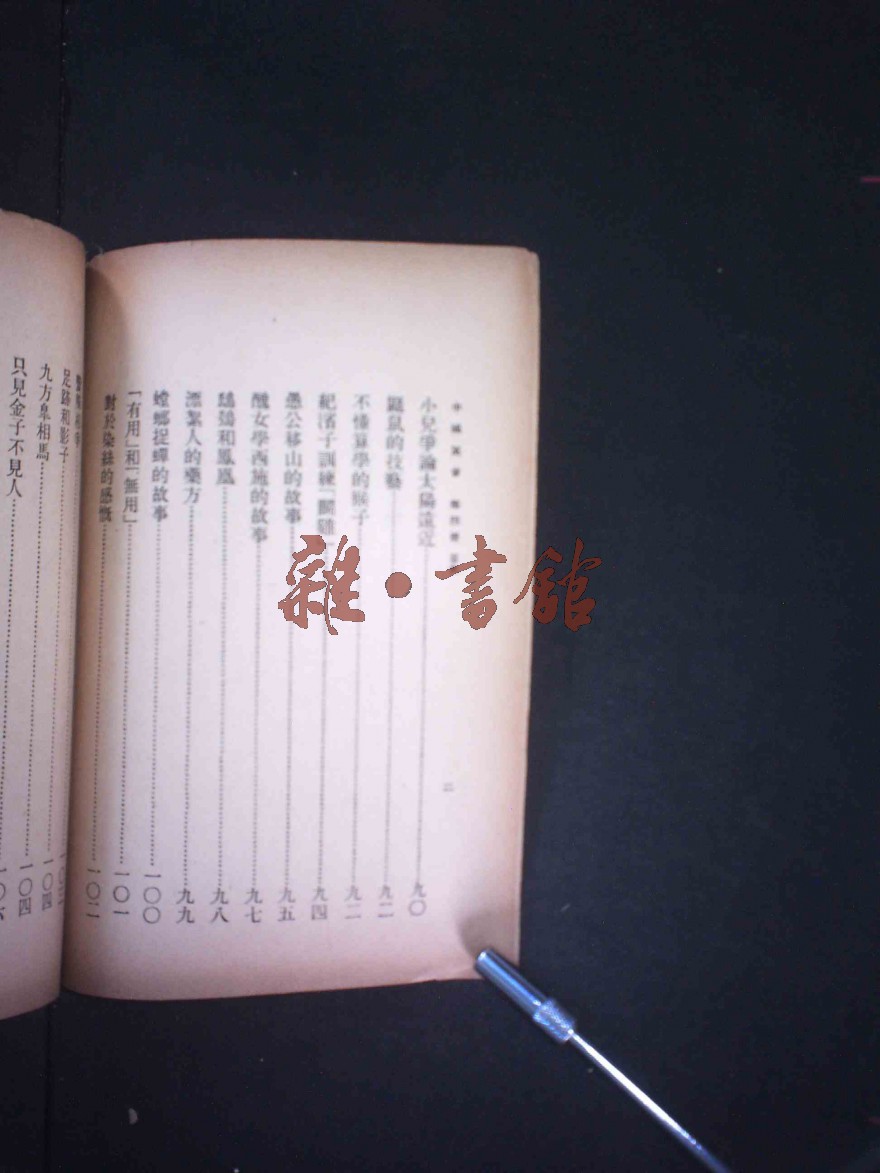 小兒爭論太陽遠近 九〇
鼯鼠的技藝 九二
不懂算學的猴子 九二
紀渻子訓練「鬥雞」 九四
愚公移山的故事 九五
醜女學西施的故事 九七
鴟鴞和鳳凰 九八
漂絮人的藥方 九九
螳螂捉蟬的故事 一〇〇
「有用」和「無用」 一〇一
對於染絲的感慨 一〇二
二
足跡和影子
九方皋相馬 一〇四
只見金子不見人 一〇四
雜·書館